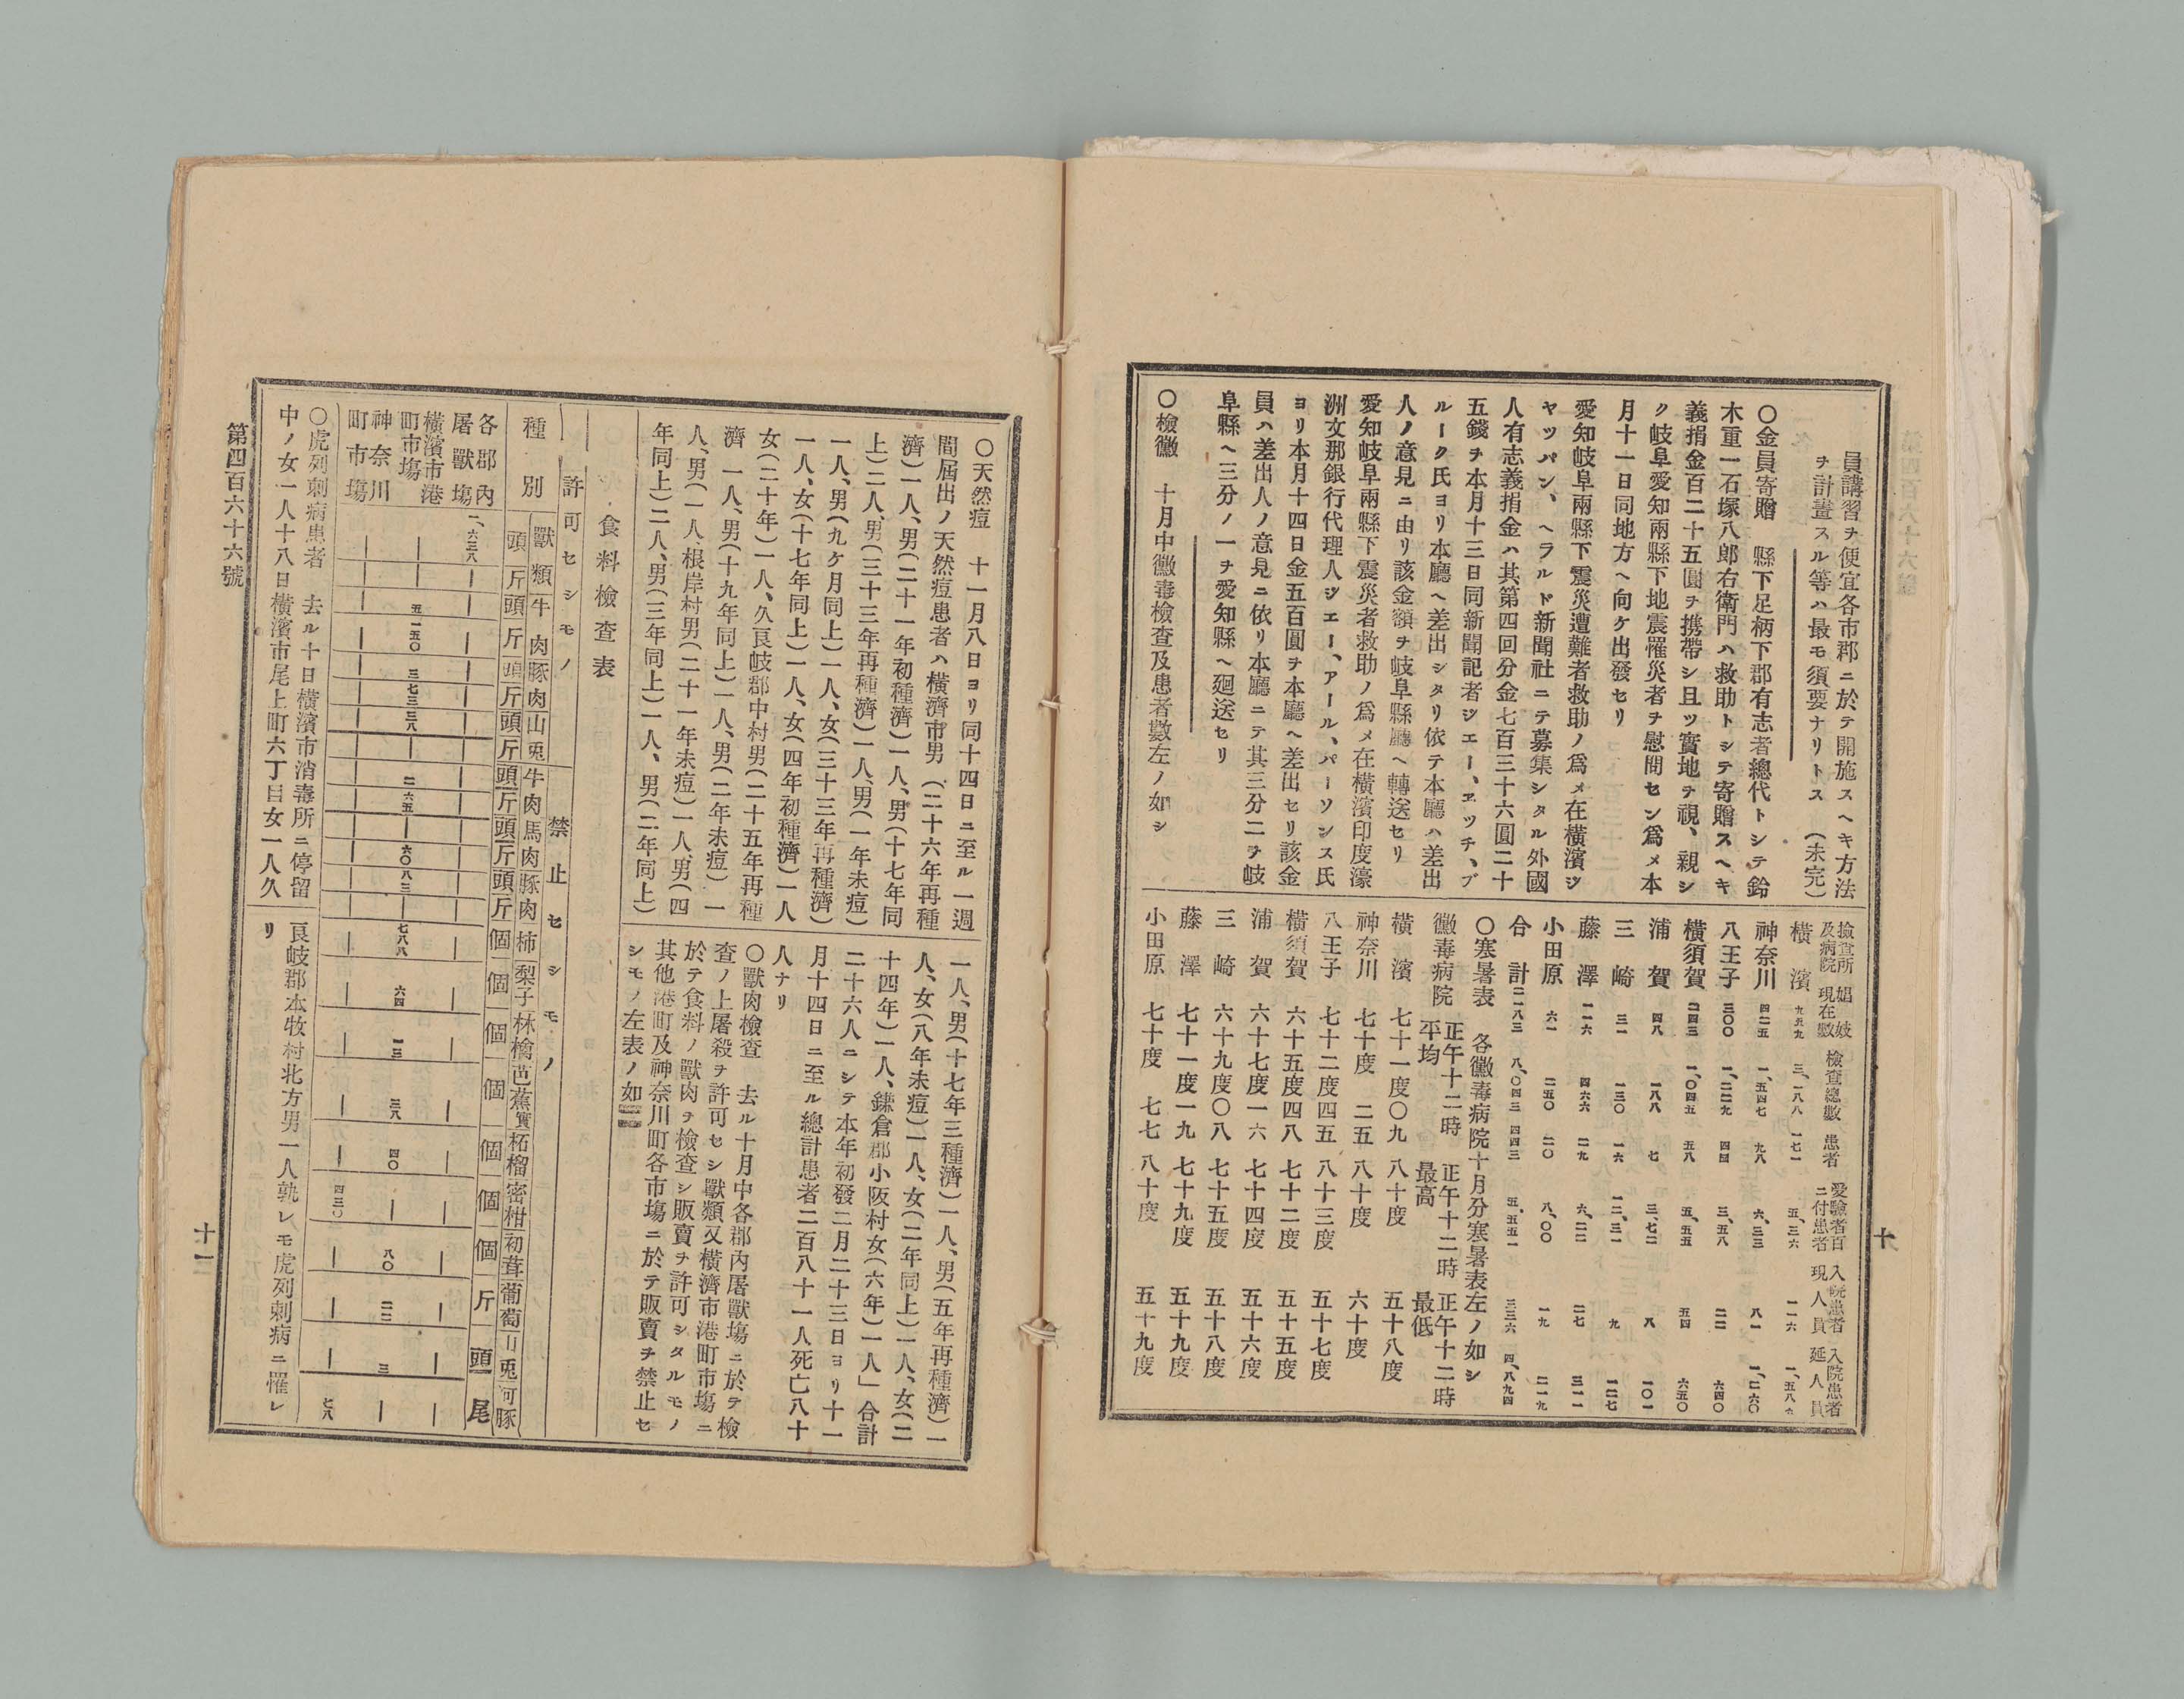 員講習ヲ便宜各市郡ニ於テ開施スヘキ方法
ヲ計畫スル等ハ最モ須要ナリトス　(未完)
〇金員寄贈　縣下足柄下郡有志者總代トシテ鈴
木重一石塚八郎右衛門ハ救助トシテ寄贈スヘキ
義捐金百二十五圓ヲ携帶シ且ツ實地ヲ視、親シ
ク岐阜愛知兩縣下地震罹災者ヲ慰問セン爲メ本
月十一日同地方ヘ向ケ出發セリ
愛知岐阜兩縣下震災遭難者救助ノ爲メ在橫濱ジ
ヤツパン、ヘラルド新聞社ニテ募集シタル外國
人有志義捐金ハ其第四回分金七百三十六圓二十
五錢ヲ本月十三日同新聞記者ジエー、エツチ、ブ
ルーク氏ヨリ本廳ヘ差出シタリ依テ本廳ハ差出
人ノ意見ニ由リ該金額ヲ岐阜縣廳ヘ轉送セリ
愛知岐阜兩縣下震災者救助ノ爲メ在橫濱印度濠
洲支那銀行代理人ジエー、アール、パーソンス氏
ヨリ本月十四日金五百圓ヲ本廳ヘ差出セリ該金
員ハ差出人ノ意見ニ依リ本廳ニテ其三分二ヲ岐
阜縣ヘ三分ノ一ヲ愛知縣ヘ廻送セリ
〇檢黴　十月中黴毒檢查及患者數左ノ如シ
檢查所及病院　娼妓現在數　檢查總數　患者　受驗者百ニ付患者　入院患者現人員　入院患者延人員
橫濱　九五九　三、一八八　一七一　五、三六　一一六
神奈川　四二五　一、五四七　九八　六、三三　八一　一、二六〇
八王子　三〇〇　一、二二九　四四　三、五八　二二　六四〇
橫須賀　二四三　一、〇四五　五八　五、五五　五四　六五〇
浦賀　四八　一八八　七　三、七二　八　一〇一
三崎　三一　一三〇　一六　一二、三一　九　一二七
藤澤　一一六　四六六　二九　六、二二　二七　三一一
小田原　六一　二五〇　二〇　八、〇〇　一九　二一九
合計　二一八三　八、〇四三　四四三　五、五五一　三三六　四、八九四
〇寒暑表　各黴毒病院十月分寒暑表左ノ如シ
黴毒病院　正午十二時平均　正午十二時最高　正午十二時最低
橫濱　七十一度〇九　八十度　五十八度
神奈川　七十度　二五　八十度　六十度
八王子　七十二度四五　八十三度　五十七度
橫須賀　六十五度四八　七十二度　五十五度
浦賀　六十七度一六　七十四度　五十六度
三崎　六十九度〇八　七十五度　五十八度
藤澤　七十一度一九　七十九度　五十九度
小田原　七十度　七七　八十度　五十九度
十
〇天然痘　十一月八日ヨリ同十四日ニ至ル一週
間屆出ノ天然痘患者ハ橫濱市男　(二十六年再種
濟)一人、男(二十一年初種濟)一人、男(十七年同
上)二人、男(三十三年再種濟)一人、男(一年未痘)
一人、男(九ケ月同上)一人、女(三十三年再種濟)
一人、女(十七年同上)一人、女(四年初種濟)一人
女(二十年)一人、久良岐郡中村男(二十五年再種
濟　一人、男(十九年同上)一人、男(二年未痘)一
人、男(一人、根岸村男(二十一年未痘)一人、男(四
年同上)二人、男(三年同上)一人、男(二年同上)
一人、男(十七年三種濟)一人、男(五年再種濟)一
人、女(八年未痘)一人、女(二年同上)一人、女(二
十四年)一人、鎌倉郡小阪村女(六年)一人」合計
二十六人ニシテ本年初發二月二十三日ヨリ十一
月十四日ニ至ル總計患者二百八十一人死亡八十
人ナリ
〇獸肉檢查　去ル十月中各郡內屠獸塲ニ於テ檢
查ノ上屠殺ヲ許可セシ獸類及橫濱市港町市塲ニ
於テ食料ノ獸肉ヲ檢查シ販賣ヲ許可シタルモノ
其他港町及神奈川町各市塲ニ於テ販賣ヲ禁止セ
シモノ左表ノ如シ
食料檢查表
許可セシモノ　禁止セシモノ
種別　獸類　牛肉　豚肉　山兎　牛肉　馬肉　豚肉　柿　梨子　林檎　芭蕉實　柘榴　密柑　初茸　葡萄　山兎　河豚
頭　斤　頭　斤　頭　斤　頭　斤　頭　斤　頭　斤　頭　斤　個　個　個　個　個　個　個　斤　頭　尾
各郡內屠獸塲　一、六三八
橫濱市港町市塲　五一五〇　三七三　三八　二　六五　六〇　八三　七八八　六四　一三　三八　四〇　八〇　二二　三
神奈川町市塲　四三〇　七八
〇虎列刺病患者　去ル十日橫濱市消毒所ニ停留
中ノ女一人十八日橫濱市尾上町六丁目女一人久
良岐郡本牧村北方男一人孰レモ虎列刺病ニ罹レ
リ
第四百六十六號
十一